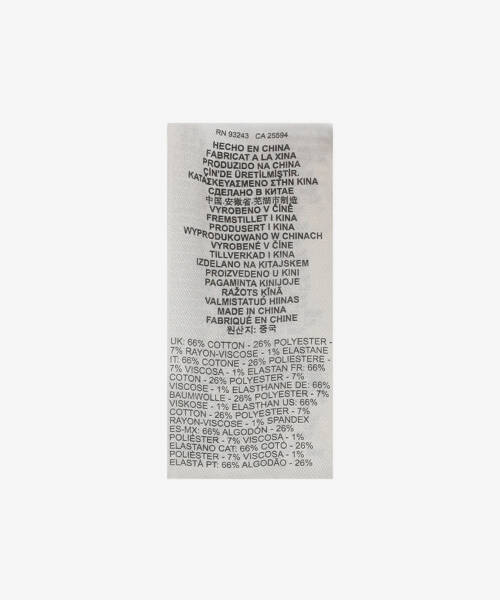 RN 93243 CA 25594
HECHO EN CHINA
FABRICAT A LA XINA
PRODUZIDO NA CHINA
ÇİN'DE ÜRETİLMİŞTİR.
ΚΑΤΑΣΚΕΥΑΣΜΕΝΟ ΣΤΗΝ ΚΙΝΑ
СДЕЛАНО В КИТАЕ
中国.安徽省.芜湖市制造
VYROBENO V ČÍNĚ
FREMSTILLET I KINA
PRODUSERT I KINA
WYPRODUKOWANO W CHINACH
VYROBENÉ V ČÍNE
TILLVERKAD I KINA
IZDELANO NA KITAJSKEM
PROIZVEDENO U KINI
PAGAMINTA KINIJOJE
RAŽOTS ĶĪNĀ
VALMISTATUD HIINAS
MADE IN CHINA
FABRIQUÉ EN CHINE
원산지: 중국
UK: 66% COTTON - 26% POLYESTER -
7% RAYON-VISCOSE - 1% ELASTANE
IT: 66% COTONE - 26% POLIESTERE -
7% VISCOSA - 1% ELASTAN FR: 66%
COTON - 26% POLYESTER - 7%
VISCOSE - 1% ELASTHANNE DE: 66%
BAUMWOLLE - 26% POLYESTER - 7%
VISKOSE - 1% ELASTHAN US: 66%
COTTON - 26% POLYESTER - 7%
RAYON-VISCOSE - 1% SPANDEX
ES-MX: 66% ALGODÓN - 26%
POLIÉSTER - 7% VISCOSA - 1%
ELASTANO CAT: 66% COTÓ - 26%
POLIÈSTER - 7% VISCOSA - 1%
ELASTÀ PT: 66% ALGODÃO - 26%